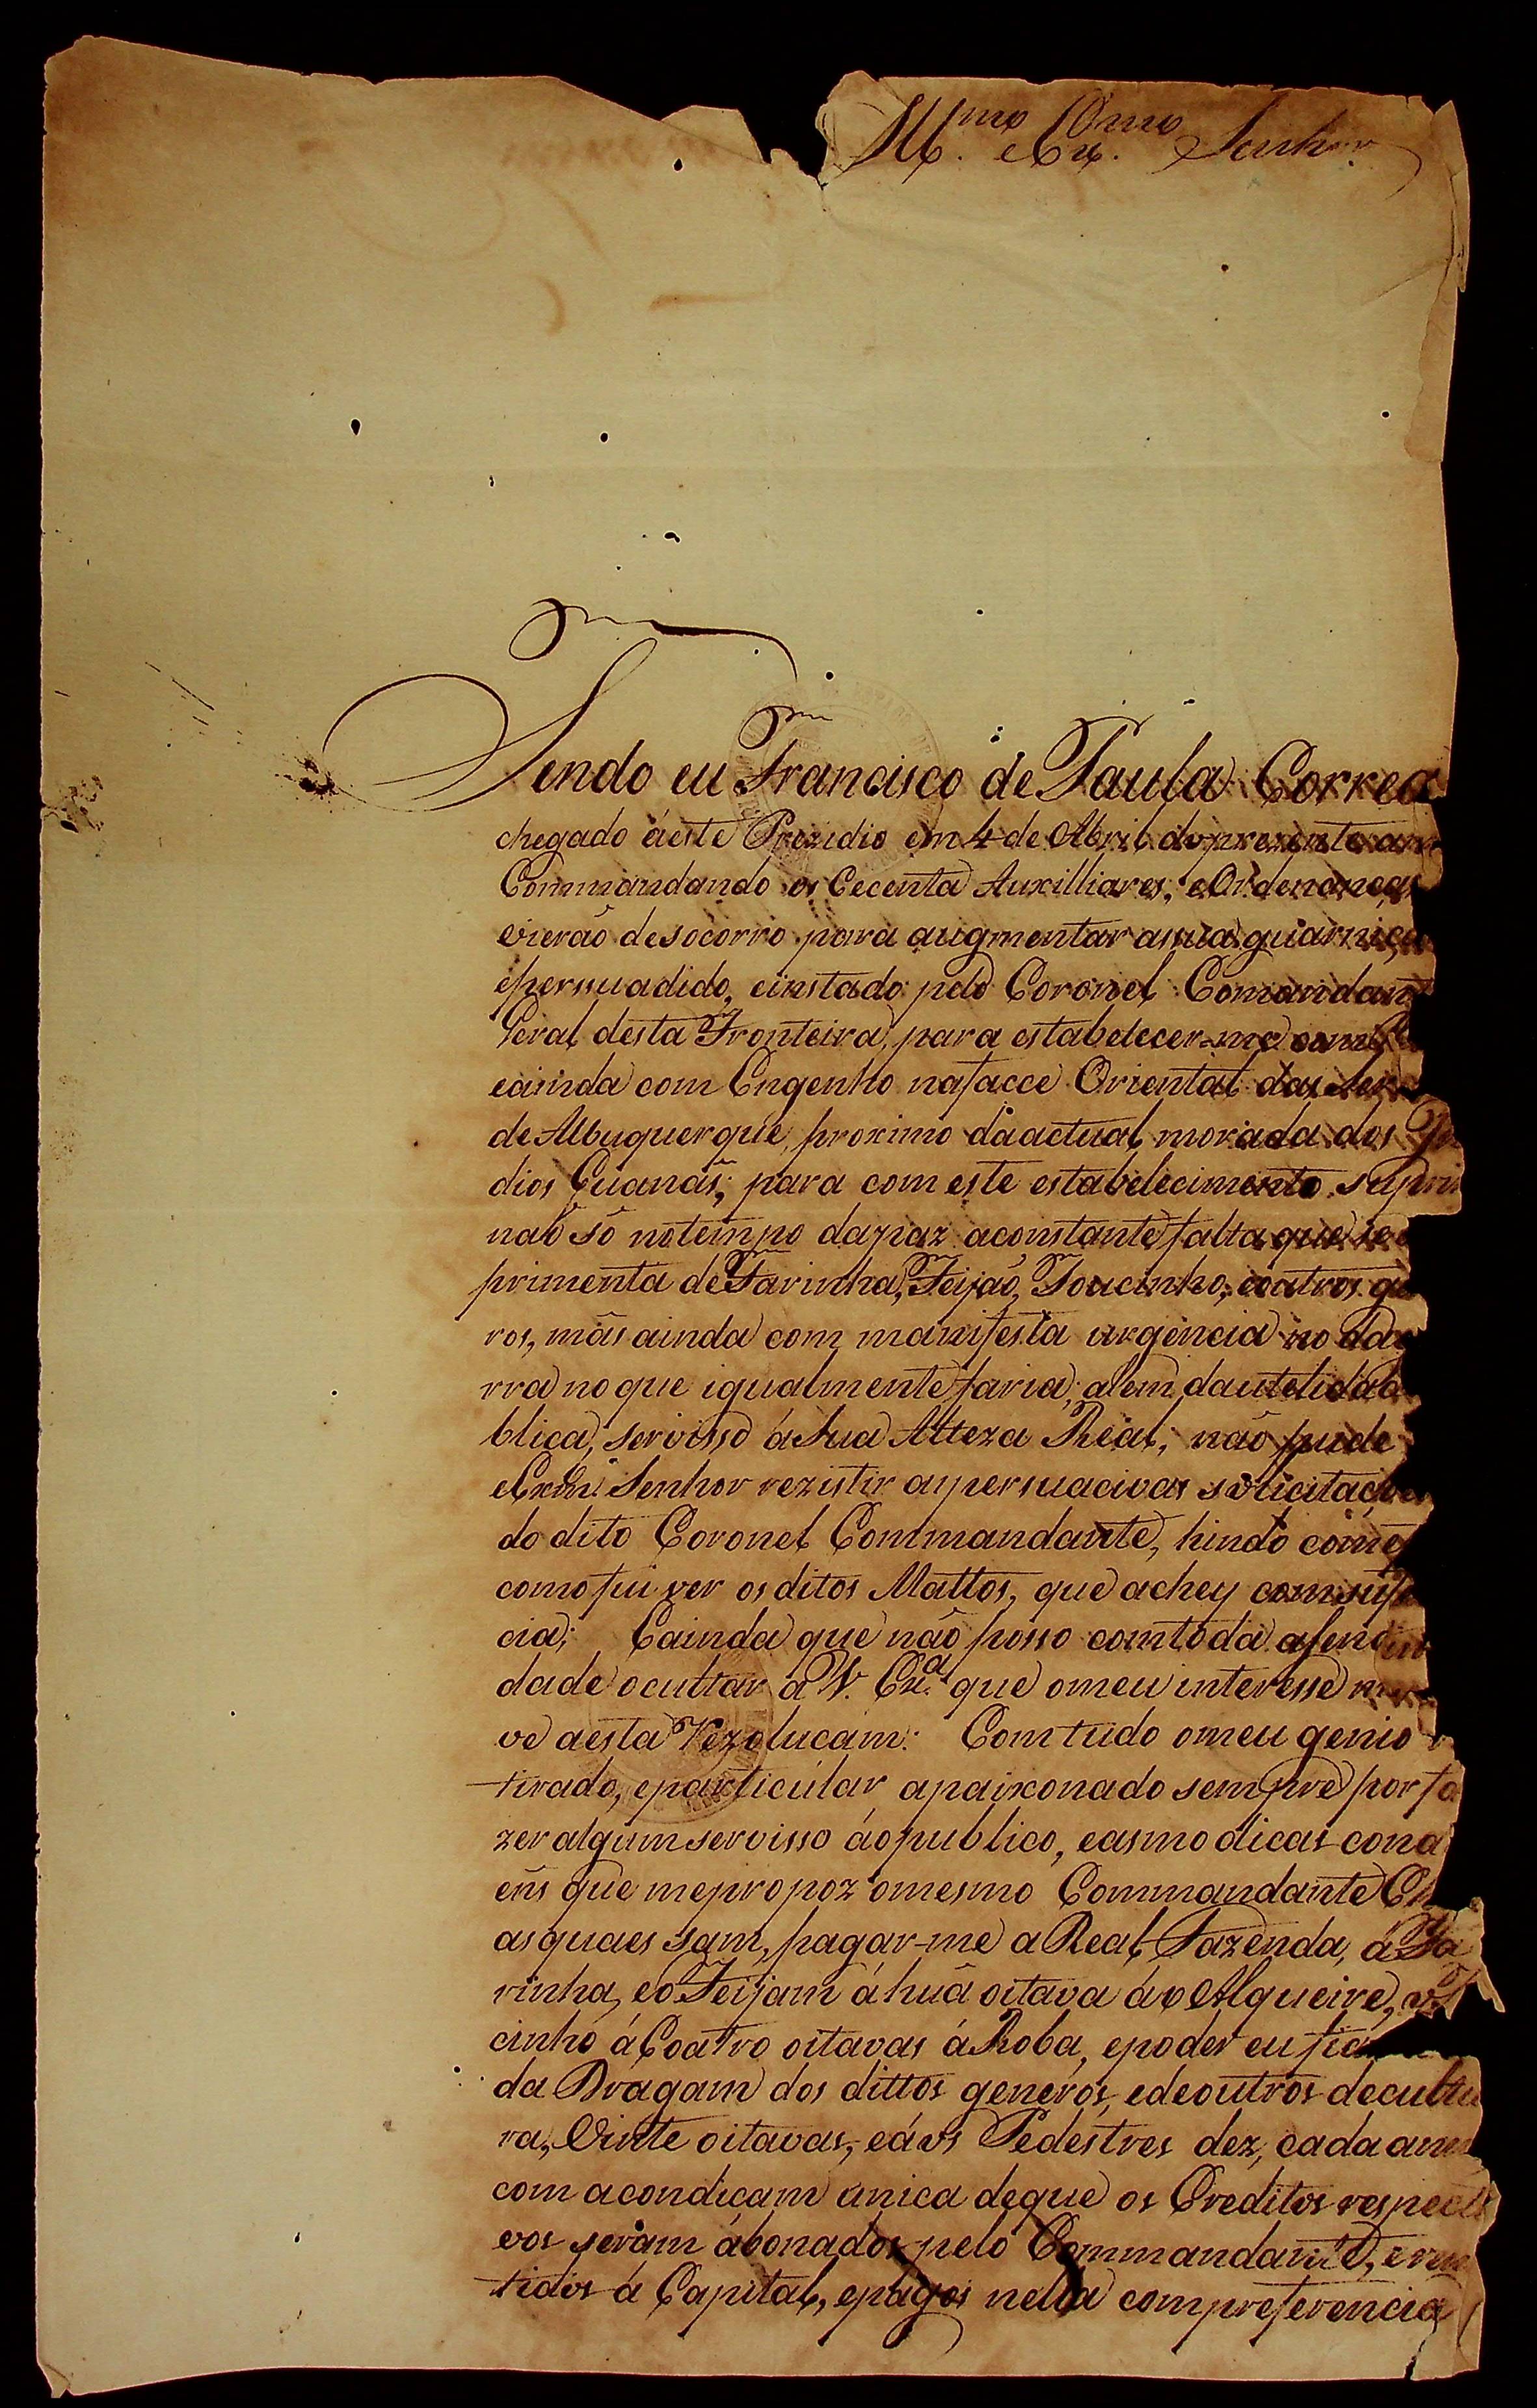 Ill.mo Ex.mo Senhor
Sendo eu Francisco de Paula Correa
chegado áeste Prezidio em 4 de Abril do prezente ann
Commandando os Cecenta Auxilliares, eOrdenanças
vierão desocorro para augmentar asua guarniça
epersuadido, einstado pelo Coronel Comandant
Geral desta Fronteira, para estabelecer-me com
eainda com Engenho nafacce Oriental das Ser
de Albuquerque, proximo daactual morada dos In
dios Guanás; para com este estabelecimento suprir
naõ só notempo dapaz aconstante falta que se e
primenta de Farinha, Feijão, Toucinho, eoutros ge
ros, mâs ainda com manifesta urgência no da
rra no que igualmente faria, alem dautelidad
blica, servisso á Sua Alteza Real; não pude
Exmo Senhor rezistir aspersuacivas solicitaçoe
do dito Coronel Commandante, hindo com
como fui ver os ditos Mattos, que achey com sufi
cia; Eainda que não posso comtoda a
dade ocultar a V. Ex.a que omeu interesse
ve aesta Rezolucam: Comtudo omeu genio
tirado, eparticular apaixonado sempre por fa
zer algum servisso áopublico, easmodicas cond
eñs que mepropoz omesmo Commandante Ch
asquaes sam, pagar-me a Real Fazenda, á Fa
rinha, eo Feijam áhuã oitava áo Alqueire,
cinho á Coatro oitavas áRoba, epoder eu fia
da Dragam dos dittos generos, edeoutros decultu
ra, Vinte oitavas, eáos Pedestres dez, cada ann
com acondicam unica deque os Creditos respecti
vos seram ábonados pelo Commandante, e reme
tidos á Capital, epagos nella compreferencia